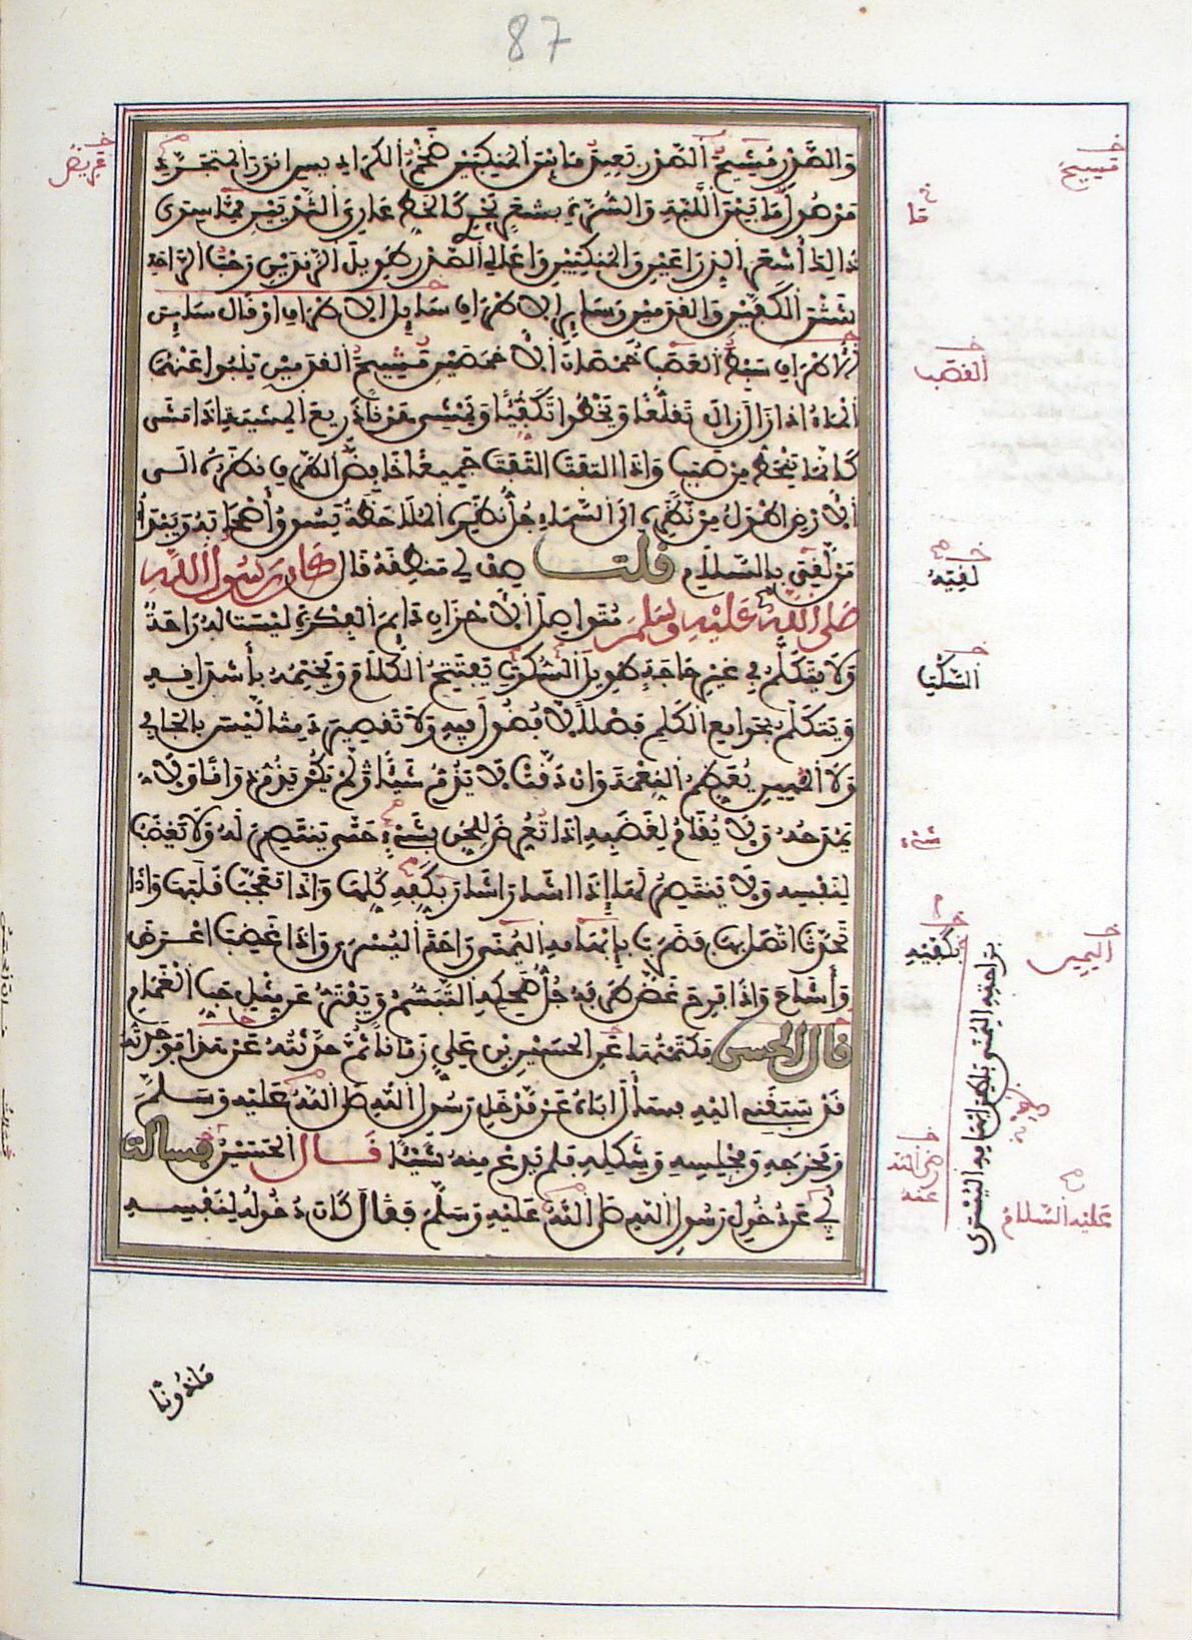 87
والصدر مشيح الصدر بعيد ما بين المنكبين ضخم الكراديس انور المتجرد
موصول ما بين اللبة والسرة بشعر يجري كالخط عاري الثديين مما سوى
ذالك أشعر الذراعين والمنكبين واعالي الصدر طويل الزندين رحب الراحة
شثن الكفين والقدمين وسايل الاطراف سايل الاطراف او قال ساين
الاطراف سبط العصب خمصان الاخمصين مسيح القدمين ينبو عنهما
الماء اذا زال زال تقلعا ويخطو تكفيا ويمشي هونا ذريع المشية اذا مشى
كانما ينحط من صبب واذا التفت التفت جميعا خافض الطرف نظره الى
الارض اطول من نظره الى السماء جل نظره الملاحظة يسوق أصحابه ويبدأ
من لقي بالسلام قلت صف لي منطقه قال كان رسول الله
صلى الله عليه وسلم متواصل الاحزان دايم الفكرة ليست له راحة
ولا يتكلم في غير حاجة طويل السكوت يفتتح الكلام ويختمه بأشداقه
ويتكلم بجوامع الكلم فضلا لا فضول فيه ولا تقصير دمثا ليس بالجافي
ولا المهين يعظم النعمة وان دقت لا يذم شيئا لم يكن يذم ذواقا ولا
يمدحه ولا يقام لغضبه اذا تعرض للحق بشيء حتى ينتصر له ولا يغضب
لنفسه ولا ينتصر لها إذا اشار اشار بكفه كلها واذا تعجب قلبها واذا
تحدث اتصل بها فضرب بإبهامه اليمنى راحته اليسرى واذا غضب اعرض
وأشاح واذا فرح غض طرفه جل ضحكه التبسم ويفتر عن مثل حب الغمام
قال الحسن فكتمتها عن الحسين بن علي زمانا ثم حدثته عن هذا فوجدته
قد سبقني اليه بسأل اباه عن مدخل رسول الله صلى الله عليه وسلم
ومخرجه ومجلسه وشكله فلم يدع منه شيئا قال الحسين فسالت
أبي عن دخول رسول الله صلى الله عليه وسلم فقال كان دخوله لنفسه
ماذونا
القصب
لقيه
السكت
شيء
بكفيه
اليمين
براحته اليمنى باطن ابهامه اليسرى
رضي الله
عنه
عليه السلام